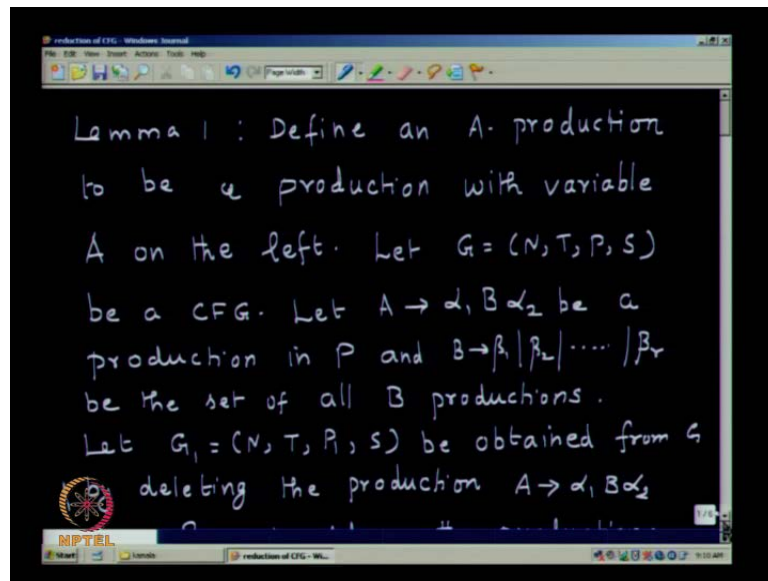 reduction of CFG - Windows Journal
File Edit View Insert Actions Tools Help
Page Width
Lemma 1 : Define an A- production
to be a production with variable
A on the left. Let G = (N, T, P, S)
be a CFG. Let A → α₁ B α₂ be a
production in P and B → β₁ | β₂ | ..... | βᵣ
be the set of all B productions.
Let G₁ = (N, T, P₁, S) be obtained from G
by deleting the production A → α₁ B α₂
1/6
NPTEL
Start kamala reduction of CFG - Wi... 9:10 AM